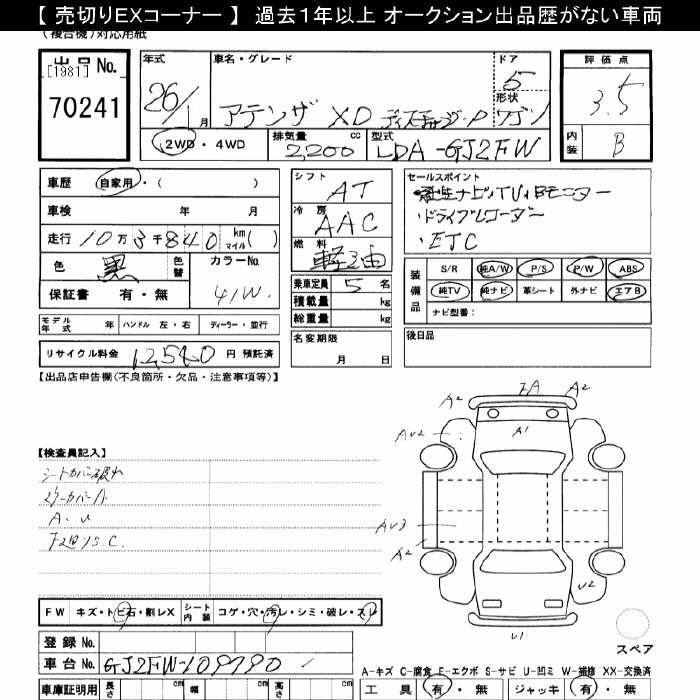 【 売切りEXコーナー 】 過去1年以上 オークション出品歴がない車両
(複合機)対応用紙
出品 No.
[1981]
70241
年式
26/1月
車名・グレード
アテンザ XD ディスチャージ・P
ドア
5
形状
ワゴン
2WD・4WD
排気量 cc
2,200
型式
LDA-GJ2FW
評価点
3.5
内装
B
車歴 自家用・( )
車検 年 月
走行 10万3千840 km(マイル)( )
色 黒
色替
カラーNo.
41W
保証書 有・無
モデル年式 年 ハンドル 左・右 ディーラー・並行
リサイクル料金 12,540 円 預託済
シフト AT
冷房 AAC
燃料 軽油
乗車定員 5 名
積載量 kg
総重量 kg
名変期限
月 日
セールスポイント
・純正ナビ・TV・Bモニター
・ドライブレコーダー
・ETC
装備品
S/R 純A/W P/S P/W ABS
純TV 純ナビ 革シート 外ナビ エアB
ナビ型番:
後日品
【出品店申告欄(不良箇所・欠品・注意事項等)】
【検査員記入】
シートカバー破れ
A.U
A2 FA A2
AU2 A1
AU3
A2
U2
U1
スペア
FW キズ・トビ石・割レX シート内装 コゲ・穴・汚レ・シミ・破レ・スレ
登録 No.
車台 No. GJ2FW-109790
車庫証明用 長さ cm 幅 cm 高さ cm
A-キズ C-腐食 E-エクボ S-サビ U-凹ミ W-補修 XX-交換済
工具 有・無 ジャッキ 有・無